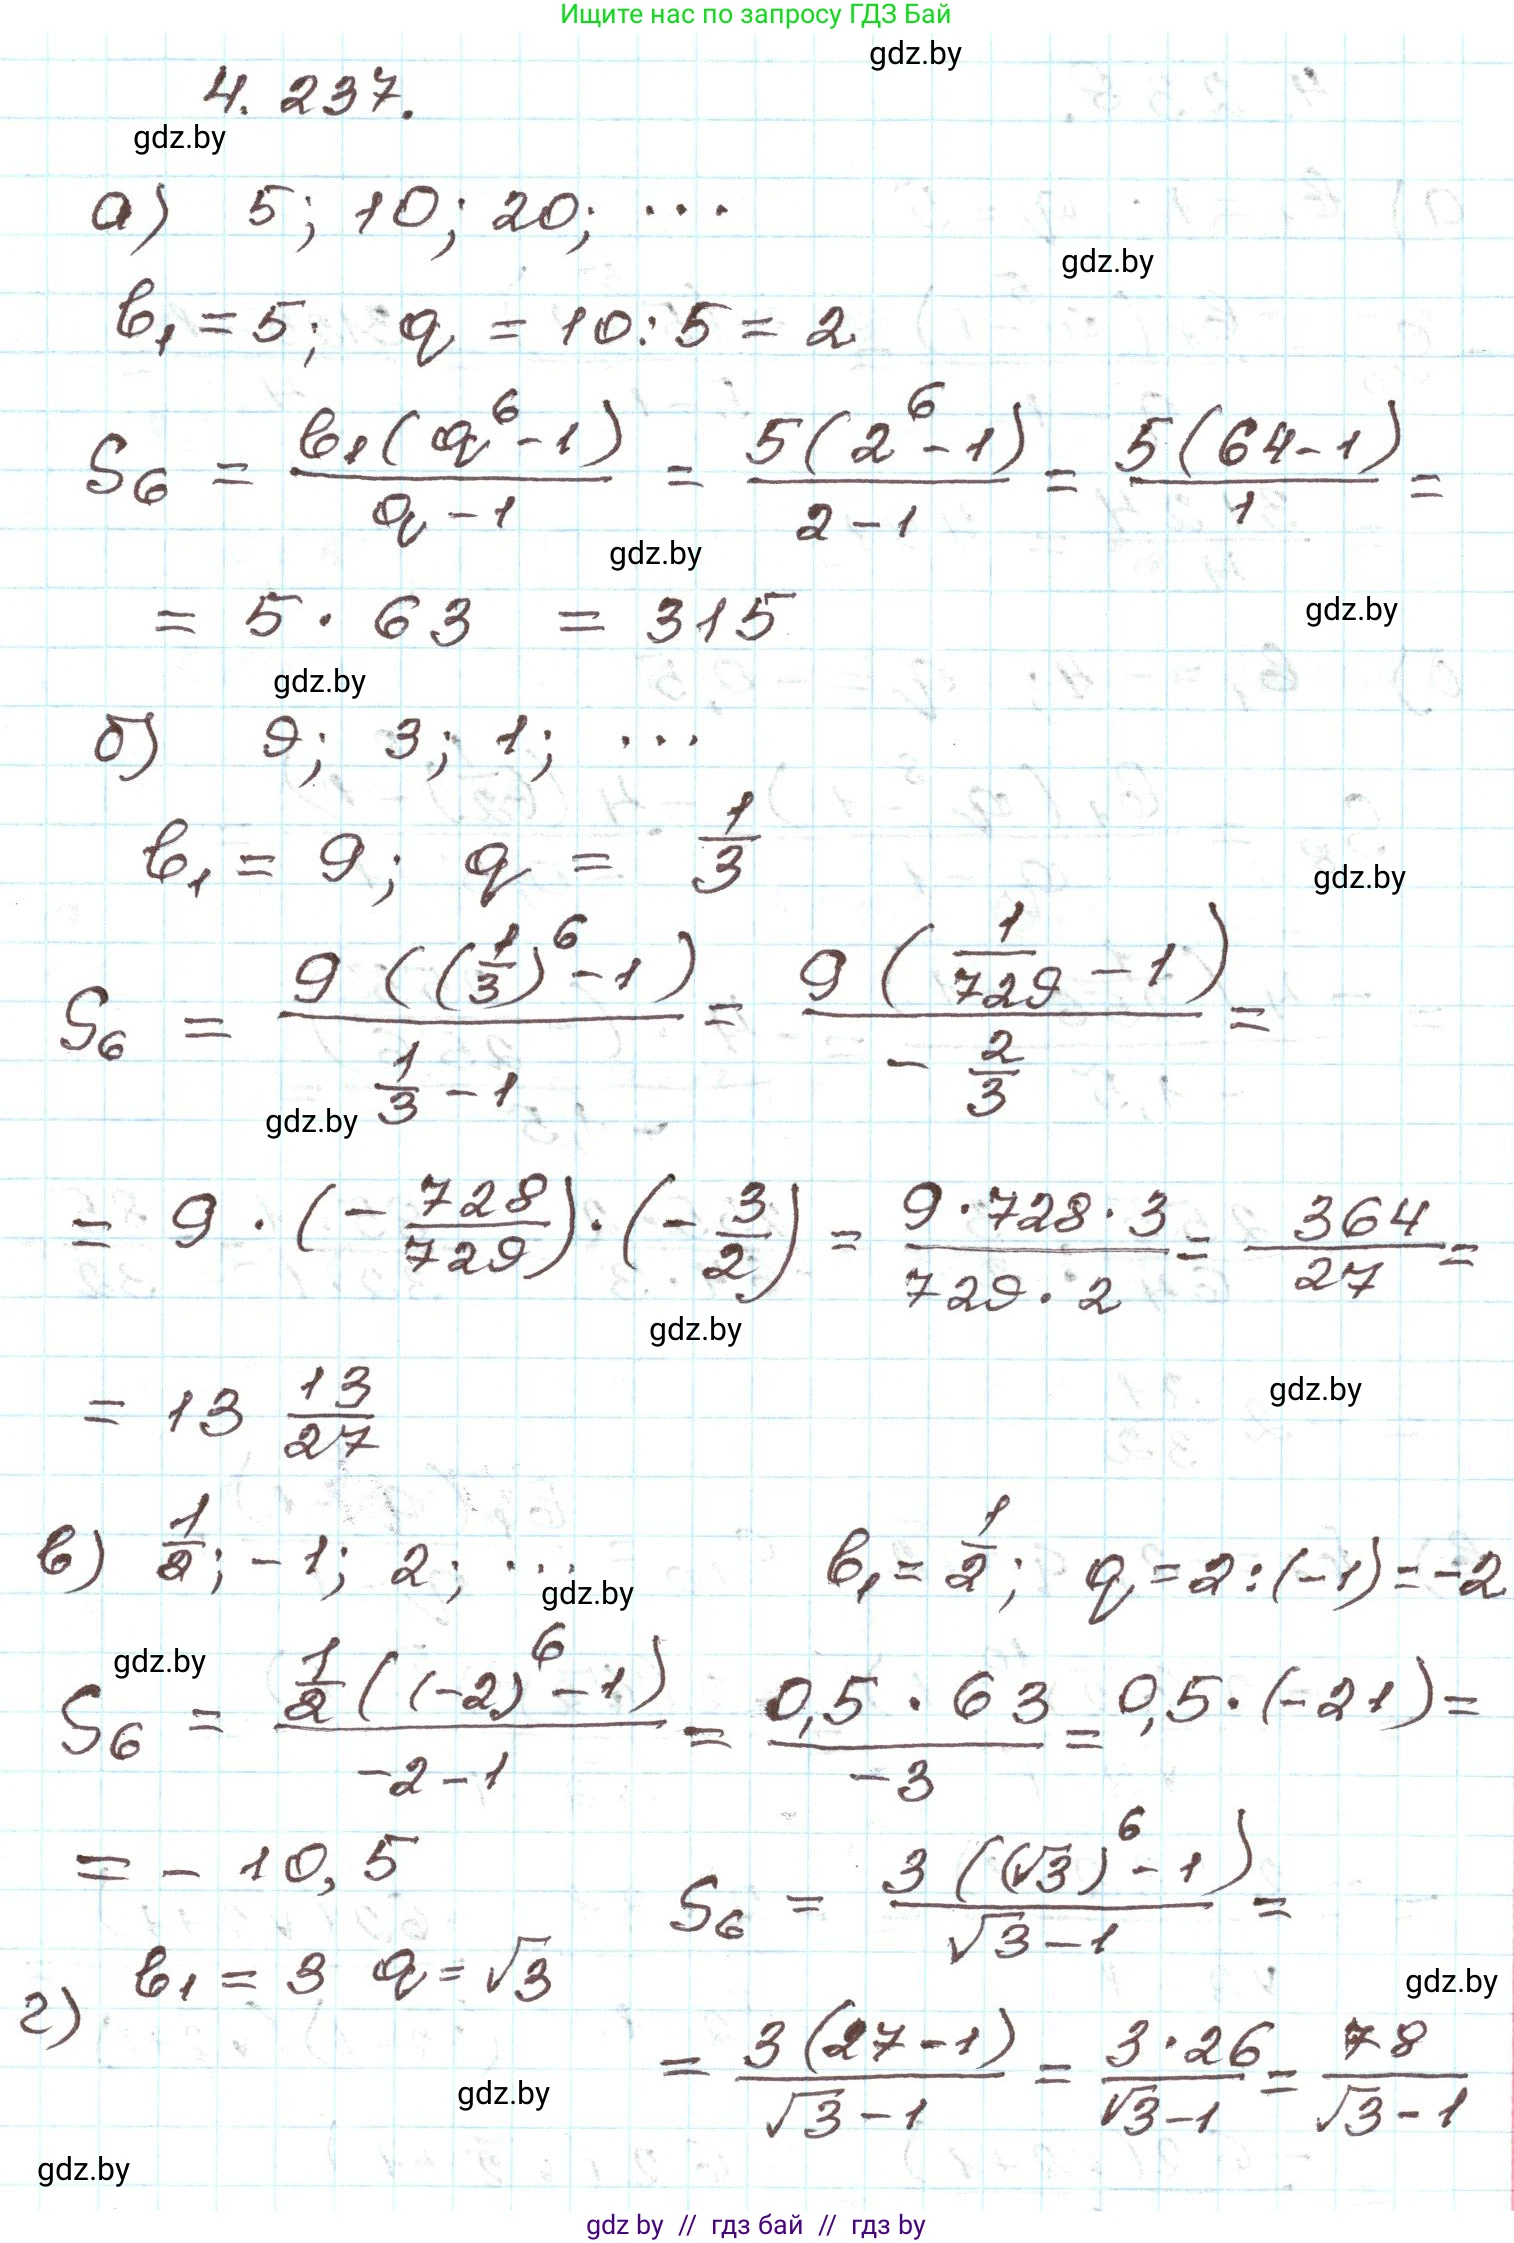 Ищите нас по запросу ГДЗ Бай
gdz.by
4.237.
gdz.by
а) 5; 10; 20; ...
gdz.by
b₁ = 5; q = 10:5 = 2
S₆ = b₁(q⁶-1)/(q-1) = 5(2⁶-1)/(2-1) = 5(64-1)/1 =
gdz.by
= 5 · 63 = 315
gdz.by
gdz.by
б) 9; 3; 1; ...
b₁ = 9; q = 1/3
gdz.by
S₆ = 9((1/3)⁶-1)/(1/3-1) = 9(1/729-1)/(-2/3) =
gdz.by
= 9 · (-728/729) · (-3/2) = 9·728·3/(729·2) = 364/27 =
gdz.by
= 13 13/27
gdz.by
в) 1/2; -1; 2; ... b₁ = 1/2; q = 2:(-1) = -2
gdz.by
gdz.by
S₆ = 1/2((-2)⁶-1)/(-2-1) = 0,5·63/(-3) = 0,5·(-21) =
= -10,5
S₆ = 3((√3)⁶-1)/(√3-1) =
г) b₁ = 3 q = √3
gdz.by
= 3(27-1)/(√3-1) = 3·26/(√3-1) = 78/(√3-1)
gdz.by
gdz.by
gdz by // гдз бай // гдз by